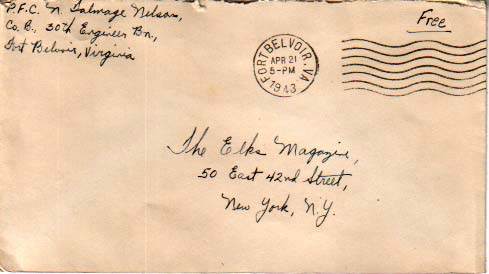 P.F.C. N. Talmage Nelson,
Co. B., 30th Engineer Bn.,
Fort Belvoir, Virginia
Free
FORT BELVOIR, VA
APR 21
5-PM
1943
The Elks Magazine,
50 East 42nd Street,
New York, N.Y.